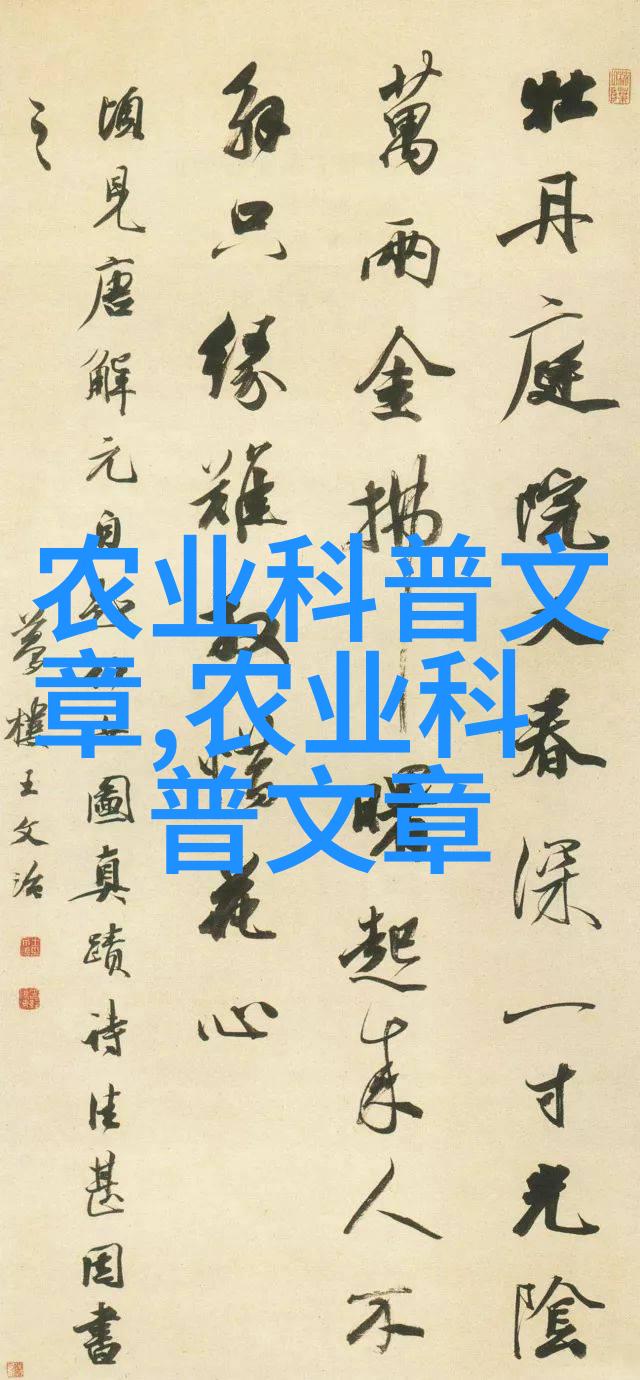 牡丹庭院又春深一寸光陰
萬兩金拂曙起來人不
解只緣難放惜花心
頃見唐解元自圖真蹟詩佳甚因書
之
夢樓王文治
农业科普文
章,农业科
普文章